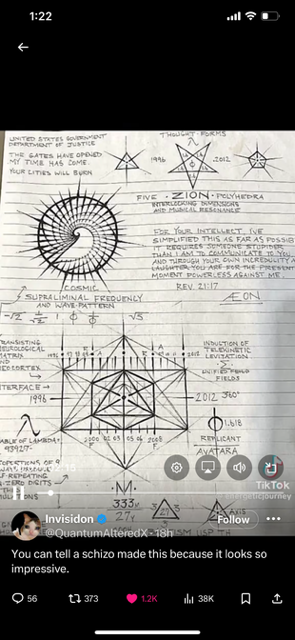 1:22
UNITED STATES GOVERNMENT
DEPARTMENT OF JUSTICE
THE GATES HAVE OPENED
MY TIME HAS COME.
YOUR CITIES WILL BURN
THOUGHT-FORMS
1996
2012
FIVE · ZION · POLYHEDRA
INTERLOCKING DIMENSIONS
AND MUSICAL RESONANCE
FOR YOUR INTELLECT, I'VE
SIMPLIFIED THIS AS FAR AS POSSIB
IT REQUIRES SOMEONE STUPIDER
THAN I AM TO COMMUNICATE TO YOU
AND THROUGH YOUR OWN INCREDULITY A
LAUGHTER YOU ARE FOR THE PRESENT
MOMENT POWERLESS AGAINST ME.
REV 21:17
ÆON
COSMIC
SUPRALIMINAL FREQUENCY
AND WAVE-PATTERN
√5
INDUCTION OF
TELEKINETIC
LEVITATION
UNIFIED FIELD
FIELDS
TRANSISTING
NEUROLOGICAL
MATRIX
AND
NEOCORTEX
INTERFACE→
1996
2012 360°
1.618
REPLICANT
AVATARA
2000
2008
·M·
333
27
AXIS
TikTok
Invisidon
@QuantumAlteredX · 18h
Follow
You can tell a schizo made this because it looks so
impressive.
56
373
1.2K
38K